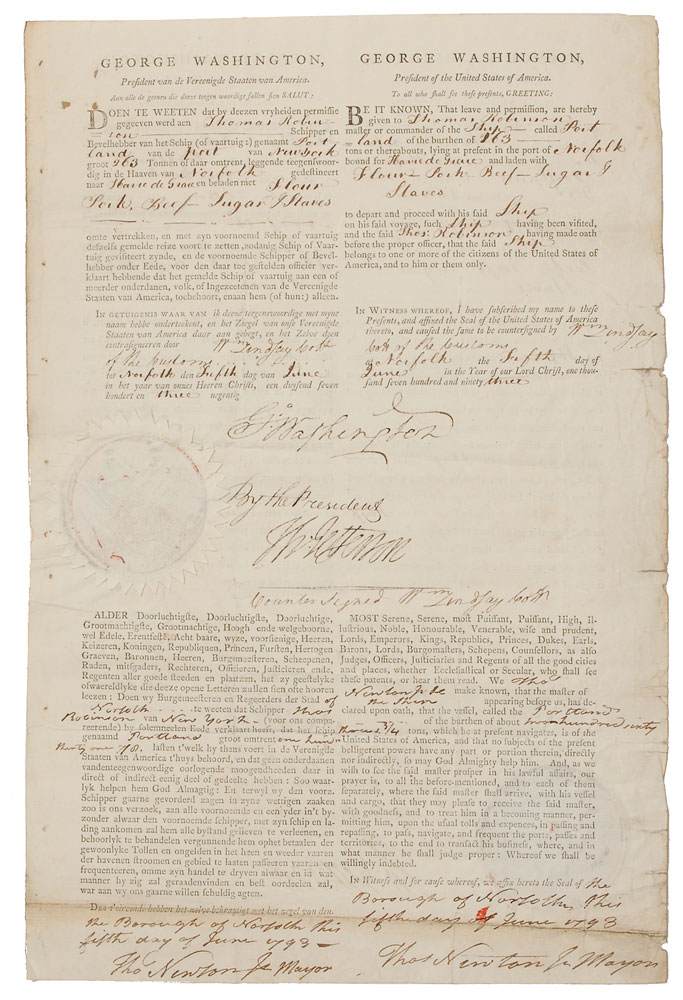 GEORGE WASHINGTON,
President van de Vereenigde Staaten van America.
Aan alle de geenen die deeze tegen woordige sullen sien SALUT:
DOEN TE WEETEN dat by deezen vryheiden permissie
gegeeven werd aen Thomas Robin-
son Schipper en
Bevelhebber van het Schip (of vaartuig:) genaamt Port
land van de Port van New York
groot 263 Tonnen of daar omtrent, leggende teegenswoor-
dig in de Haaven van Norfolk gedestineert
naar Havre de Grace en beladen met Flour
Pork, Beef Sugar & Slaves
omte vertrekken, en met zyn voornoemd Schip of vaartuig
deszelfs gemelde reize voort te zetten, zodanig Schip of Vaar-
tuig gevisiteert zynde, en de voornoemde Schipper of Bevel-
hebber onder Eede, voor den daar toe gestelden officier ver-
klaart hebbende dat het gemelde Schip of vaartuig aan een of
meerder onderdanen, volk, of Ingezeetenen van de Vereenigde
Staaten van America, toebehoort, enaan hem (of hun:) alleen.
IN GETUIGENIS WAAR VAN ik deeze teegenwoordige met myne
naam hebbe onderteekent, en het Zeegel van onse Vereenigde
Staaten van America daar aan gehegt, en het Zelve doen
contrasigneeren door Wm. Lindsay Collr.
of the Customs
tot Norfolk den Fifth dag van June
in het jaar van onzes Heeren Christi, een duysend seven
hondert en three negentig
GEORGE WASHINGTON,
President of the United States of America.
To all who shall see these presents, GREETING:
BE IT KNOWN, That leave and permission, are hereby
given to Thomas Robinson
master or commander of the Ship called Port
land of the burthen of 263
tons or thereabouts, lying at present in the port of Norfolk
bound for Havre de Grace and laden with
Flour Pork Beef Sugar &
Slaves
to depart and proceed with his said Ship
on his said voyage, such Ship having been visited,
and the said Thos. Robinson having made oath
before the proper officer, that the said Ship
belongs to one or more of the citizens of the United States of
America, and to him or them only.
IN WITNESS WHEREOF, I have subscribed my name to these
Presents, and affixed the Seal of the United States of America
thereto, and caused the same to be countersigned by Wm. Lindsay
Collr. of the Customs
at Norfolk the Fifth day of
June in the Year of our Lord Christ, one thou-
sand seven hundred and ninety three
Go. Washington
By the President
Th: Jefferson
Counter Signed Wm. Lindsay Collr.
ALDER Doorluchtigste, Doorluchtigste, Doorluchtige,
Grootmachtigste, Grootmachtige, Hoogh ende welgeboorne,
wel Edele, Erentfeste, Acht baare, wyze, voorsienige, Heeren,
Keizeren, Koningen, Republiquen, Princen, Fursten, Hertogen
Graeven, Baronnen, Heeren, Burgemeesteren, Scheepenen,
Raden, mitsgaders, Rechteren, Officieren, Justicieren ende,
Regenten aller goede steeden en plaatzen, het zy geestelyke
ofwaereldlyke die deeze opene Letteren zullen sien ofte hooren
leezen: Doen wy Burgemeesteren en Regeerders der Stad of
Norfolk te weeten dat Schipper Thos.
Robinson van New York (voor ons compa-
reerende) by solemneelen Eede verklaart heeft, dat het schip
genaamd Portland groot omtrent one hun
thirty one 78. lasten t'welk hy thans voert in de Vereenigde
Staaten van America t'huys behoord, en dat geen onderdaanen
vandenteegenwoordige oorlogende moogendheiden daar in
direct of indirect eenig deel of gedeelte hebben: Soo waar-
lyk helpen hem God Almagtig: En terwyl wy den voorz.
Schipper gaarne gevorderd zagen in zyne wettigen zaaken
zoo is ons verzoek, aan alle voornoemde en een yder in't by-
zonder alwaar den voornoemde schipper, met zyn schip en la-
ding aankomen zal hem alle bystand gelieven te verleenen, en
behoorlyk te behandelen vergunnende hem ophet betaalen der
gewoonlyke Tollen en ongelden in het heen en weeder vaaren
der havenen stroomen en gebied te laaten passeeren vaaren en
frequenteeren, omme zyn handel te dryven alwaar en in wat
manier hy zig zal geraadenvinden en best oordeelen zal,
war aan wy ons gaarne willen schuldig agten.
Des Poirende hebben het zelve bekragtigt met het zegel van den.
the Borough of Norfolk this
fifth day of June 1793
Thos Newton Jr Mayor
MOST Serene, Serene, most Puissant, Puissant, High, Il-
lustrious, Noble, Honourable, Venerable, wise and prudent,
Lords, Emperors, Kings, Republics, Princes, Dukes, Earls,
Barons, Lords, Burgomasters, Schepens, Counsellors, as also
Judges, Officers, Justiciaries and Regents of all the good cities
and places, whether Ecclesiastical or Secular, who shall see
these patents, or hear them read. We Thos
Newton Jr make known, that the master of
the Ship appearing before us, has de-
clared upon oath, that the vessel, called the Portland
of the burthen of about two hundred sixty
three 3/4 tons, which he at present navigates, is of the
United States of America, and that no subjects of the present
belligerent powers have any part or portion therein, directly
nor indirectly, so may God Almighty help him. And, as we
wish to see the said master prosper in his lawful affairs, our
prayer is, to all the before-mentioned, and to each of them
separately, where the said master shall arrive, with his vessel
and cargo, that they may please to receive the said master,
with goodness, and to treat him in a becoming manner, per-
mitting him, upon the usual tolls and expences, in passing and
repassing, to pass, navigate, and frequent the ports, passes and
territories, to the end to transact his business, where, and in
what manner he shall judge proper: Whereof we shall be
willingly indebted.
In Witness and for cause whereof, we affix hereto the Seal of the
Borough of Norfolk, this
fifth day of June 1793
Thos Newton Jr Mayor